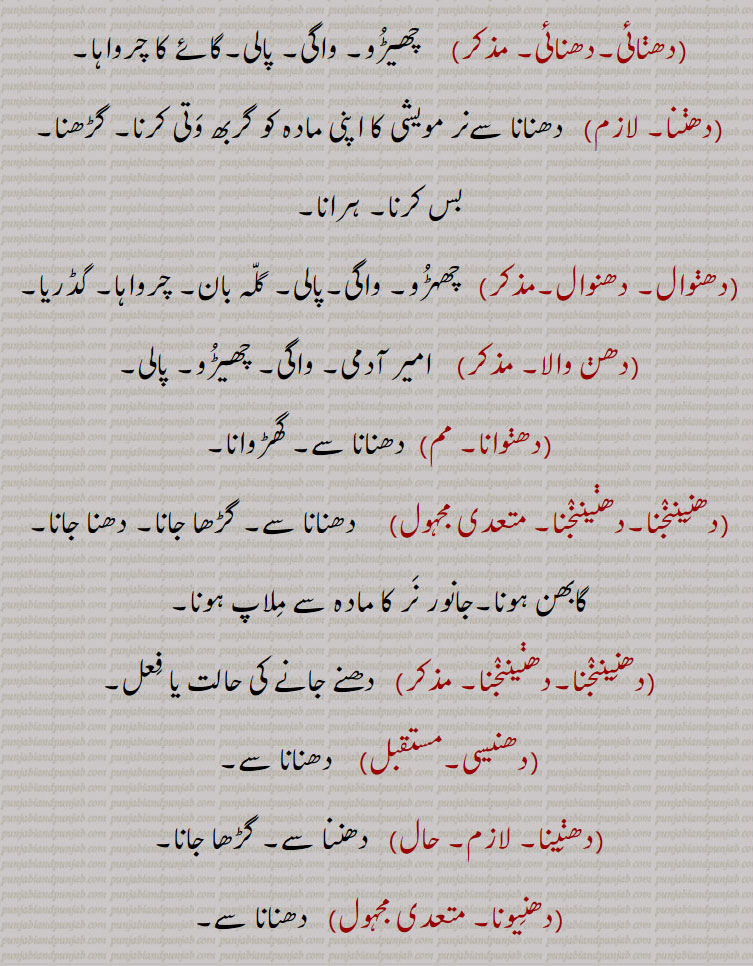 (دھݨائی۔دھنائی۔ مذکر) چھیڑُو۔ واگی۔ پالی۔گائے کا چرواہا۔
(دھݨنا۔ لازم) دھنانا سےنر مویشی کا اپنی مادہ کو گربھ وَتی کرنا۔ گڑھنا۔
بس کرنا۔ ہرانا۔
(دھݨوال۔ دھنوال۔مذکر) چھہڑُو۔ واگی۔پالی۔ گلّہ بان۔ چرواہا۔ گڈریا۔
(دھݨ والا۔ مذکر) امیر آدمی۔ واگی۔ چھیڑُو۔ پالی۔
(دھݨوانا۔ مم) دھنانا سے۔ گھڑوانا۔
(دھنِینݨجنا۔دھݨینݨجنا۔ متعدی مجہول) دھنانا سے۔ گڑھا جانا۔ دھنا جانا۔
گابھن ہونا۔جانور نَر کا مادہ سے مِلاپ ہونا۔
(دھنِینݨجنا۔دھݨینݨجنا۔ مذکر) دھنے جانے کی حالت یا فِعل۔
(دھنیسی۔مستقبل) دھنانا سے۔
(دھݨِینا۔ لازم۔ حال) دھننا سے۔ گڑھا جانا۔
(دھنِیونا۔ متعدی مجہول) دھنانا سے۔